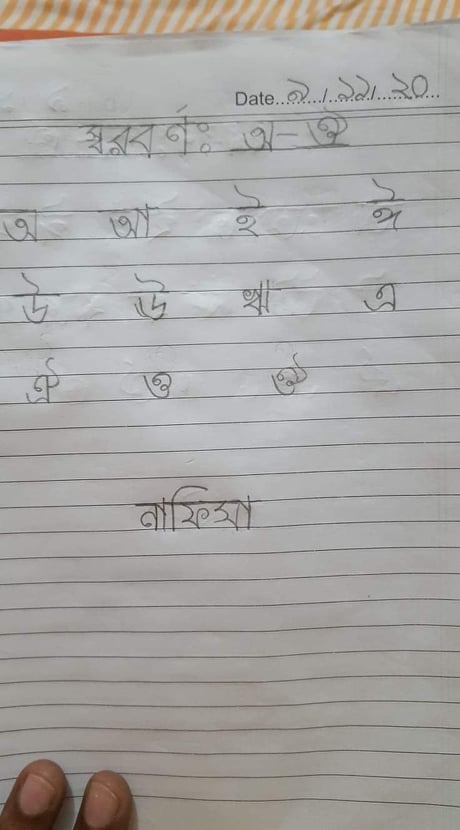 Date ৯/১১/২০
স্বরবর্ণ: অ-ঔ
অ আ ই ঈ
উ ঊ ঋ এ
ঐ ও ঔ
নাফিসা